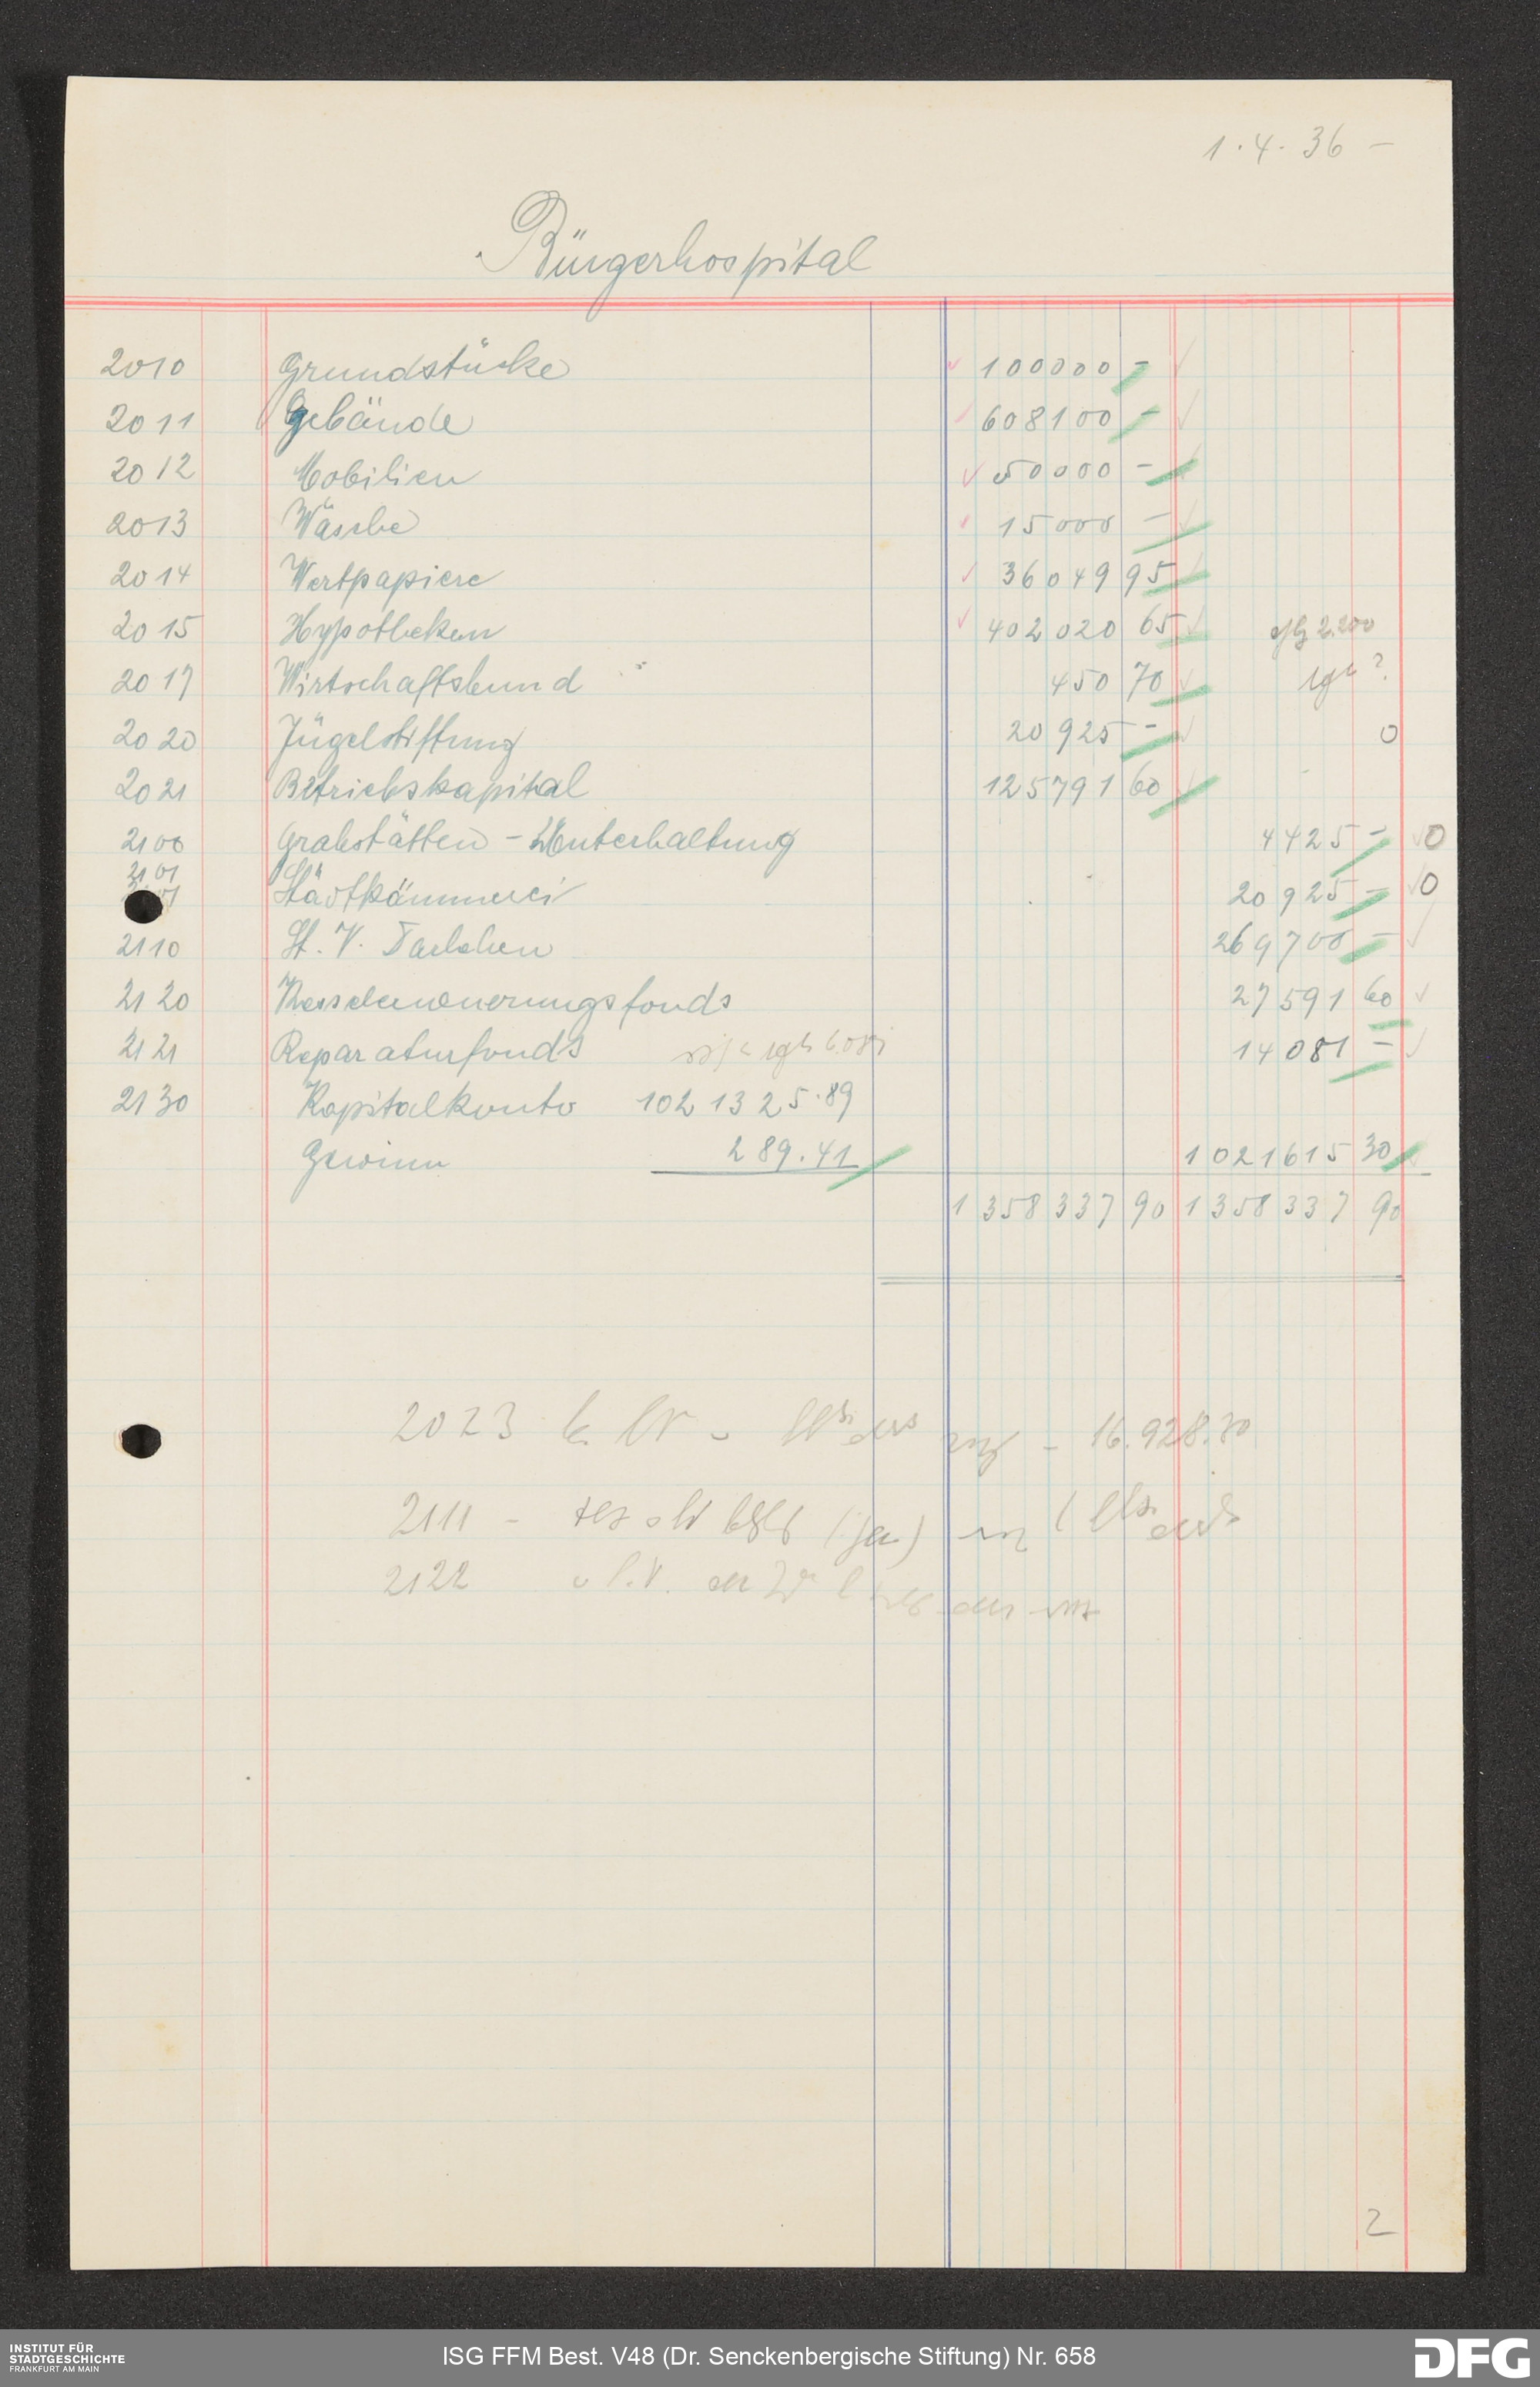 1.4.36 –
Bürgerhospital
2010 Grundstücke 100000 –
2011 Gebäude 608100 –
2012 Mobilien 50000 –
2013 Wäsche 15000 –
2014 Wertpapiere 36049 95
2015 Hypotheken 402020 65 2.200
2017 Wirtschaftsbund 450 70 ?
2020 Jügelstiftung 20925 – 0
2021 Betriebskapital 125791 60
2100 Grabstätten – Unterhaltung 4425 – 0
2101 Stadtkämmerei 20925 – 0
2110 St. V. Darlehen 269700 –
2120 Kesselerneuerungsfonds 27591 60
2121 Reparaturfonds 14081 –
2130 Kapitalkonto 1021325.89
Gewinn 289.41 1021615 30
1358337 90 1358337 90
2023 – 16.928.30
2111 –
2122
2
INSTITUT FÜR
STADTGESCHICHTE
FRANKFURT AM MAIN
ISG FFM Best. V48 (Dr. Senckenbergische Stiftung) Nr. 658
DFG